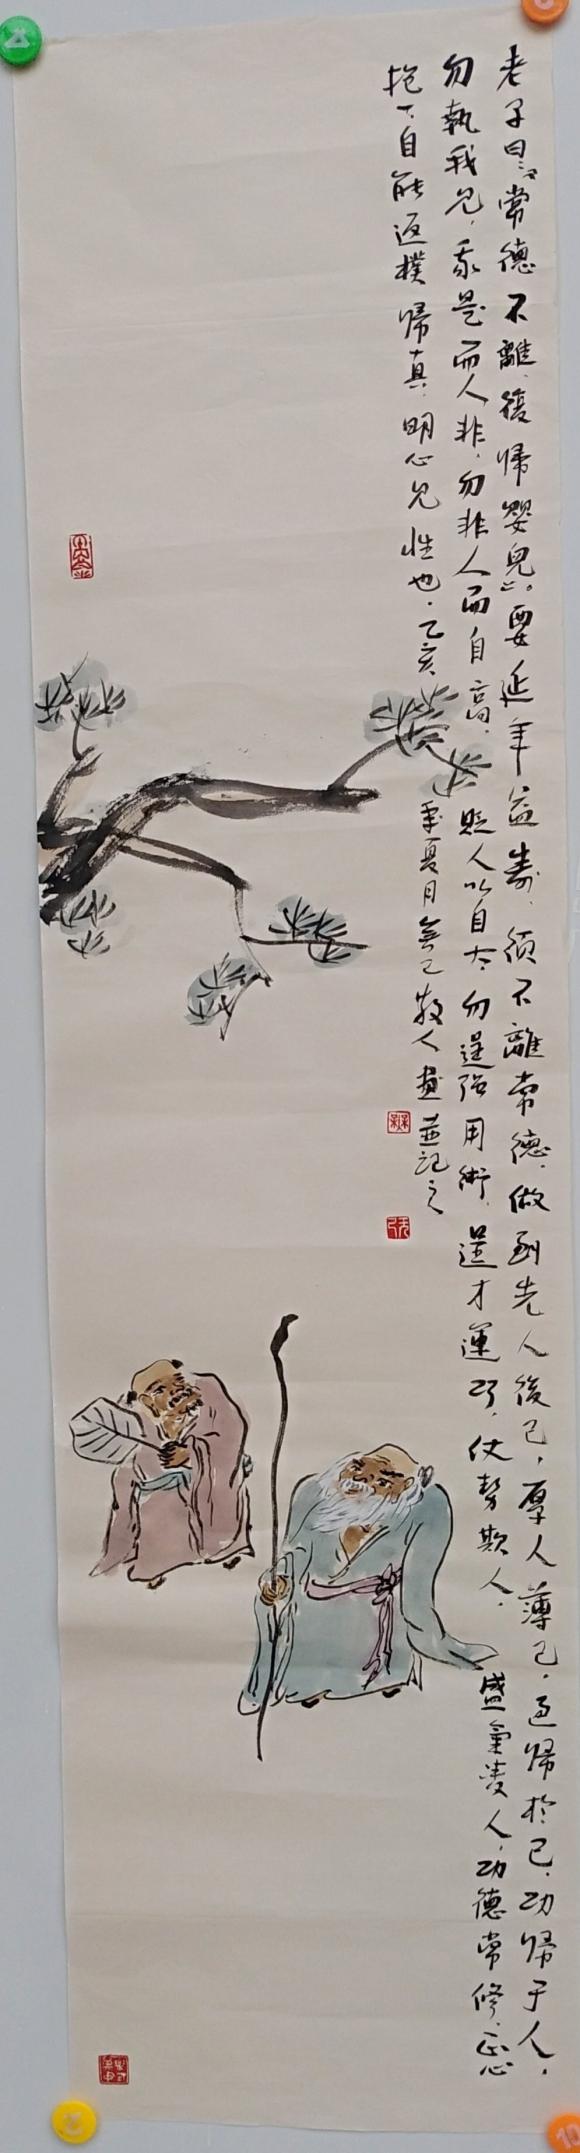 老子曰:“常德不離,復歸嬰兒”。要延年益壽,須不離常德,做到先人後己,厚人薄己,過歸於己,功歸于人,
勿執我見,我是而人非,勿非人而自高,貶人以自大,勿逞强用術,逞才運巧,仗勢欺人,盛氣凌人,功德常修,正心
抱一,自能返樸歸真,明心見性也.乙亥
夏月無己散人畫並記之